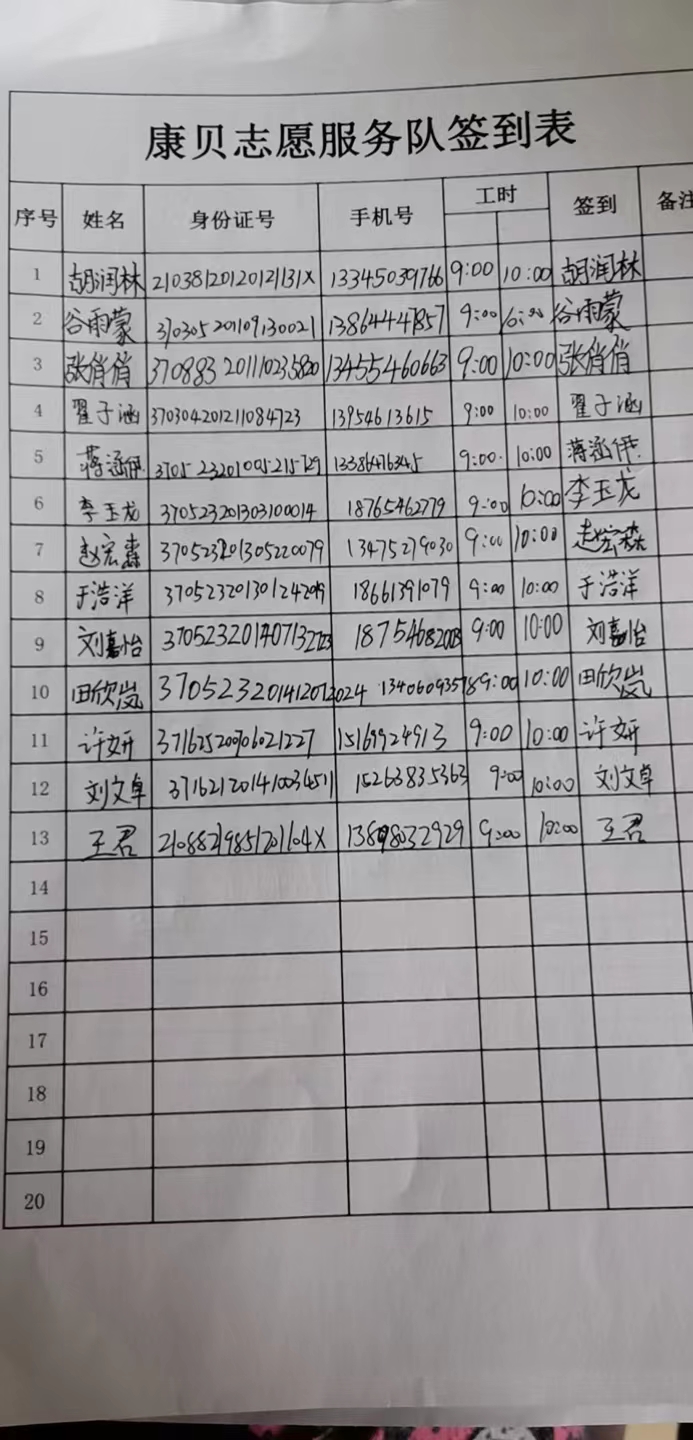 康贝志愿服务队签到表
序号 姓名 身份证号 手机号 工时 签到 备注
1 胡润林 21038120120121131X 13345039766 9:00 10:00 胡润林
2 谷雨蒙 370305201109130021 13864447857 9:00 10:00 谷雨蒙
3 张俏俏 370883201110235820 13455460663 9:00 10:00 张俏俏
4 翟子涵 370304201211084723 13954613615 9:00 10:00 翟子涵
5 蒋涵伊 370523201005215729 13386476345 9:00 10:00 蒋涵伊
6 李玉龙 370523201303100014 18765462779 9:00 10:00 李玉龙
7 赵宏森 370523201305220079 13475279030 9:00 10:00 赵宏森
8 于浩洋 18661391079 9:00 10:00 于浩洋
9 刘嘉怡 370523201407132723 18754682003 9:00 10:00 刘嘉怡
10 田欣岚 370523201412072024 13406093578 9:00 10:00 田欣岚
11 许妍 371625200906021227 15169924913 9:00 10:00 许妍
12 刘文卓 371621201410034511 15263835363 9:00 10:00 刘文卓
13 王君 21088219851201104X 13898032929 9:00 10:00 王君
14
15
16
17
18
19
20